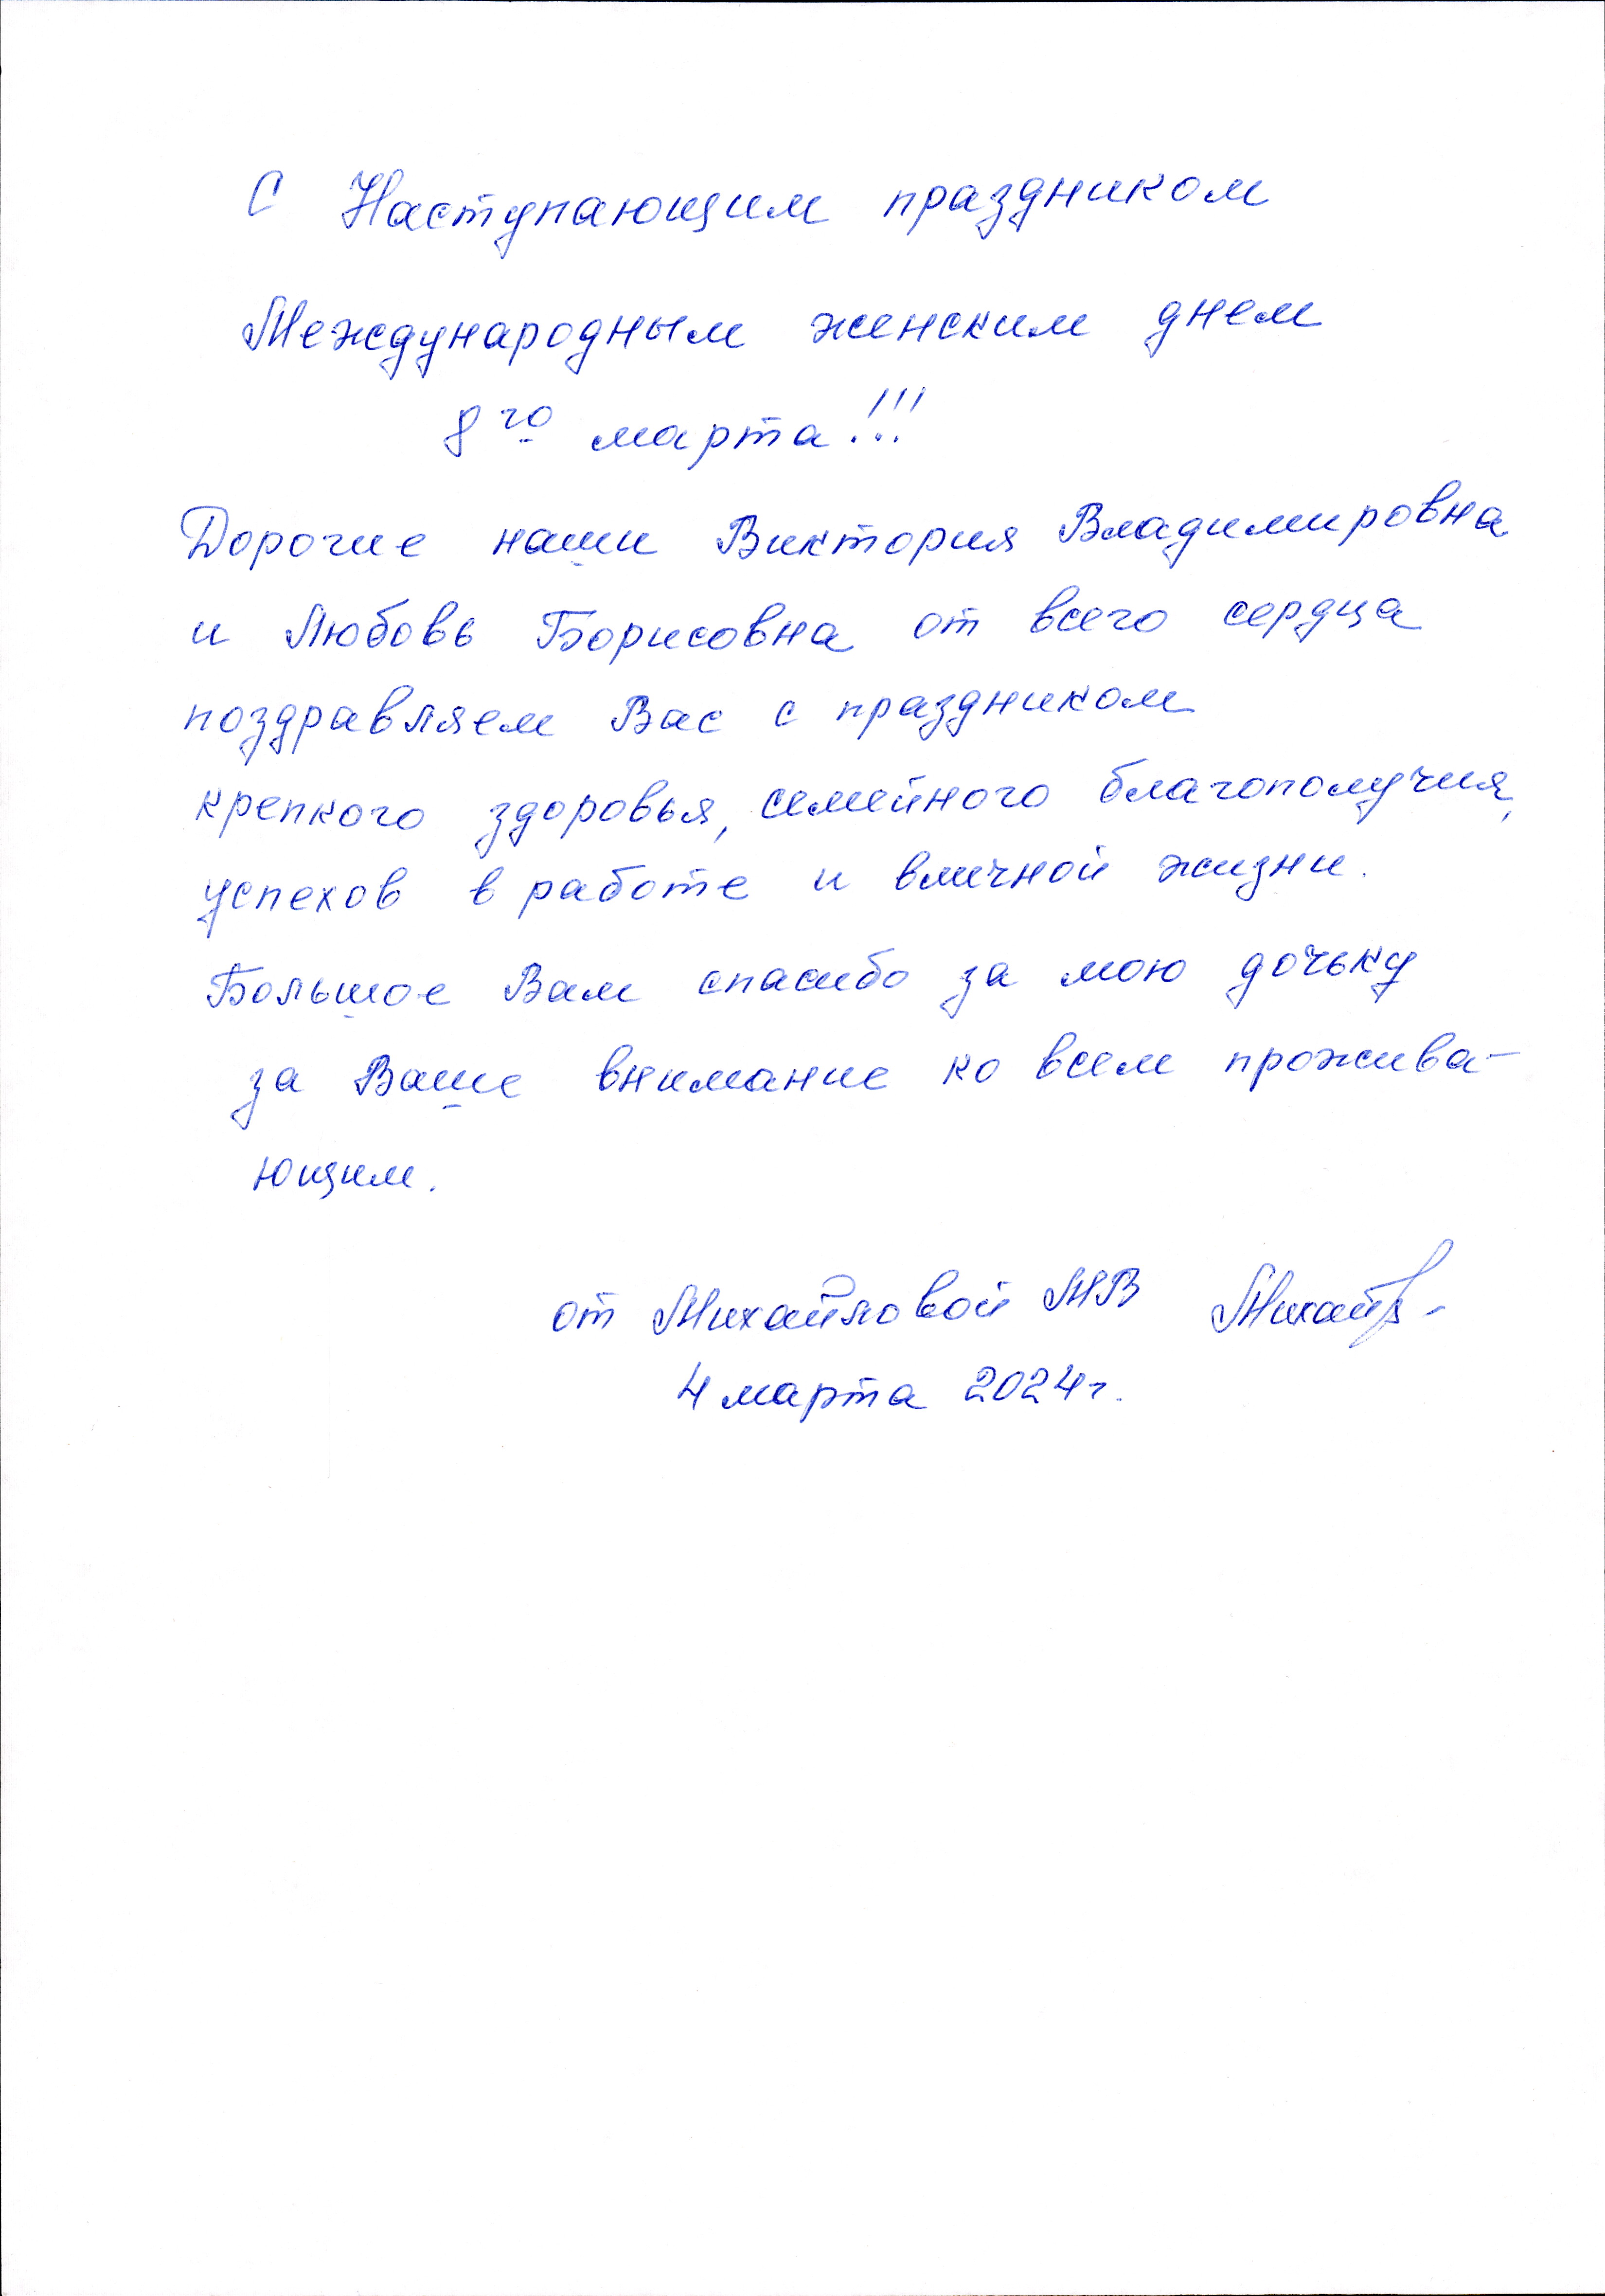 С Наступающим праздником
Международным женским днем
8го марта!!!
Дорогие наши Виктория Владимировна
и Любовь Борисовна от всего сердца
поздравляем Вас с праздником
крепкого здоровья, семейного благополучия,
успехов в работе и вличной жизни.
Большое Вам спасибо за мою дочьку
за Ваше внимание ко всем прожива-
ющим.
от Михайловой МВ
4 марта 2024г.